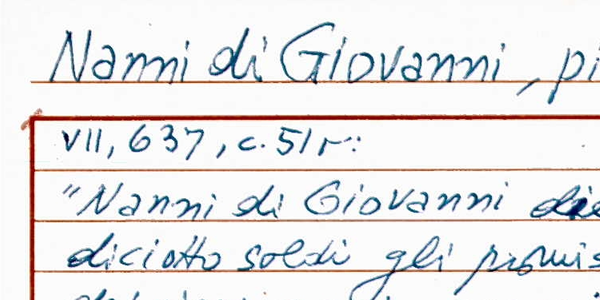 Nanni di Giovanni, pi
VII, 637, c. 51r:
"Nanni di Giovanni die
diciotto soldi gli promis